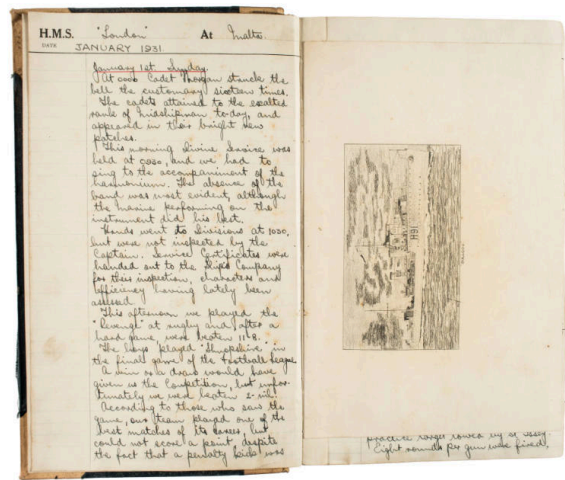 H.M.S. "London" At Malta
DATE JANUARY 1931.
January 1st. Sunday.
At 0000 Cadet Morgan struck the
bell the customary sixteen times.
The cadets attained to the exalted
rank of Midshipman today, and
appeared in their bright new
patches.
This morning Divine Service was
held at 0930, and we had to
sing to the accompaniment of the
harmonium. The absence of the
band was most evident, although
the marine performing on the
instrument did his best.
Hands went to Divisions at 1030,
but were not inspected by the
Captain. Service Certificates were
handed out to the Ship's Company
for their inspection, characters and
efficiency having lately been
assessed.
This afternoon we played the
"Revenge" at rugby and, after a
hard game, were beaten 11-8.
The boys played "Shropshire" in
the final game of the Football League.
A win or a draw would have
given us the Competition, but unfor-
tunately we were beaten 2-nil.
According to those who saw the
game, our team played one of the
best matches of its career, but
could not score a point, despite
the fact that a penalty kick was
H61
practice target towed by
Eight rounds per gun were fired,